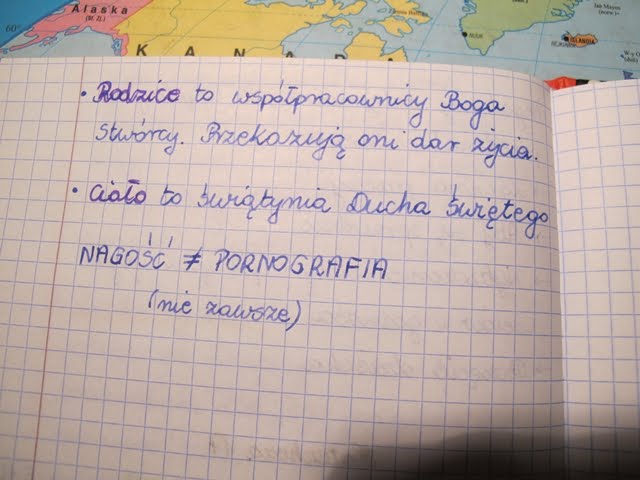 Alaska
(St. Zj.)
60°
K A N A D A
NUUK
Jan Mayen
(norw.)
ISLANDIA
REYKJAVIK
• Rodzice to współpracownicy Boga
Stwórcy. Przekazują oni dar życia.
• Ciało to świątynia Ducha Świętego
NAGOŚĆ ≠ PORNOGRAFIA
(nie zawsze)